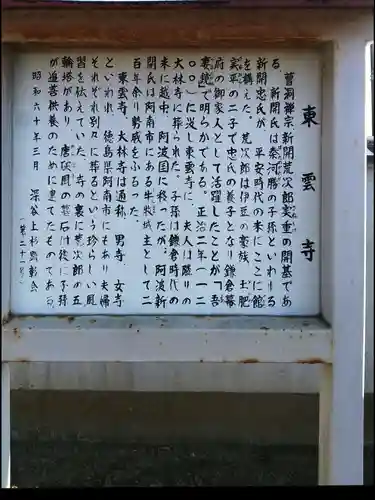 東雲寺
曹洞禅宗新開荒次郎実重の開基であ
る。新開氏は秦河勝の子孫といわれる
新開忠氏が、平安時代の末にここに館
を構えた。荒次郎は伊豆の豪族、土肥
実平の二子で忠氏の養子となり鎌倉幕
府の御家人として活躍したことが「吾
妻鏡」で明らかである。正治二年(一二
〇〇)に没し東雲寺に、夫人は隣りの
大林寺に葬られた。子孫は鎌倉時代の
末に越中、阿波国に移ったが、阿波新
開氏は阿南市にある牛牧城主として二
百年余り勢威をふるった。
東雲寺、大林寺は通称、男寺、女寺
といわれ、徳島県阿南市にもあり夫婦
それぞれ別々に葬るという珍らしい風
習を伝えていた。寺の裏に荒次郎の五
輪塔があり、唐破風の墓石は後に子孫
が追善供養のために建てたものである。
昭和六十年三月 深谷上杉顕彰会
(第二十一号)